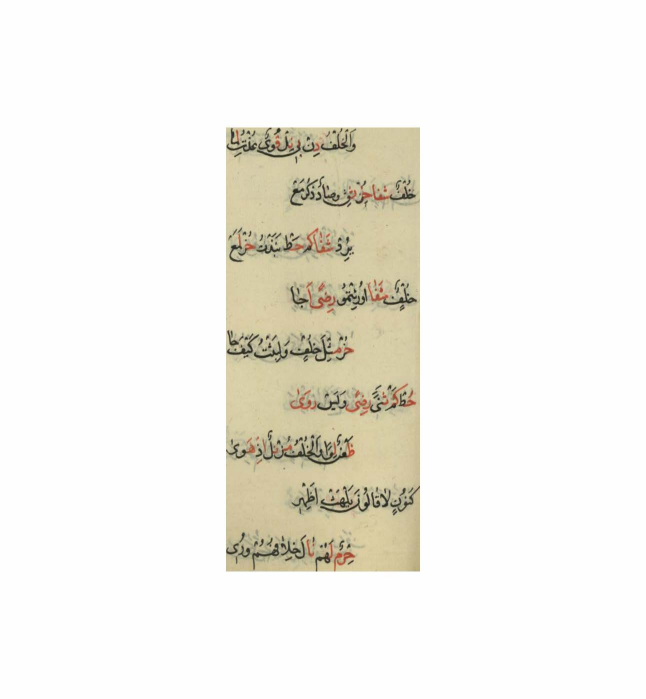 وَالْخُلْفُ دِنْ بِي نَلْ قُوًى عُذْتُ لِمَا
خُلْفٌ شَفَا حُزْ ثِقْ وَصَادَ ذِكْرُ مَعْ
يُرِدْ شَفَا كَمْ حُطْ نَبَذْتُ حُزْ لُمَعْ
خُلْفٌ شَفَا أُورِثْتُمُو رِضًى لَجَا
حُزْ مِثْلَ خُلْفٍ وَلَبِثْتُ كَيْفَ جَا
حُطْ كَمْ ثَنَا رِضًى وَيسٓ رَوَى
ظَعْنٌ لِوَا وَالْخُلْفُ مِزْ نَلْ إِذْ هَوَى
كَنُونِ لَا قَالُونَ يَلْهَثْ أَظْهِرِ
حِرْمٌ لَهُمْ نَالَ خِلَافُهُمْ وَرِي